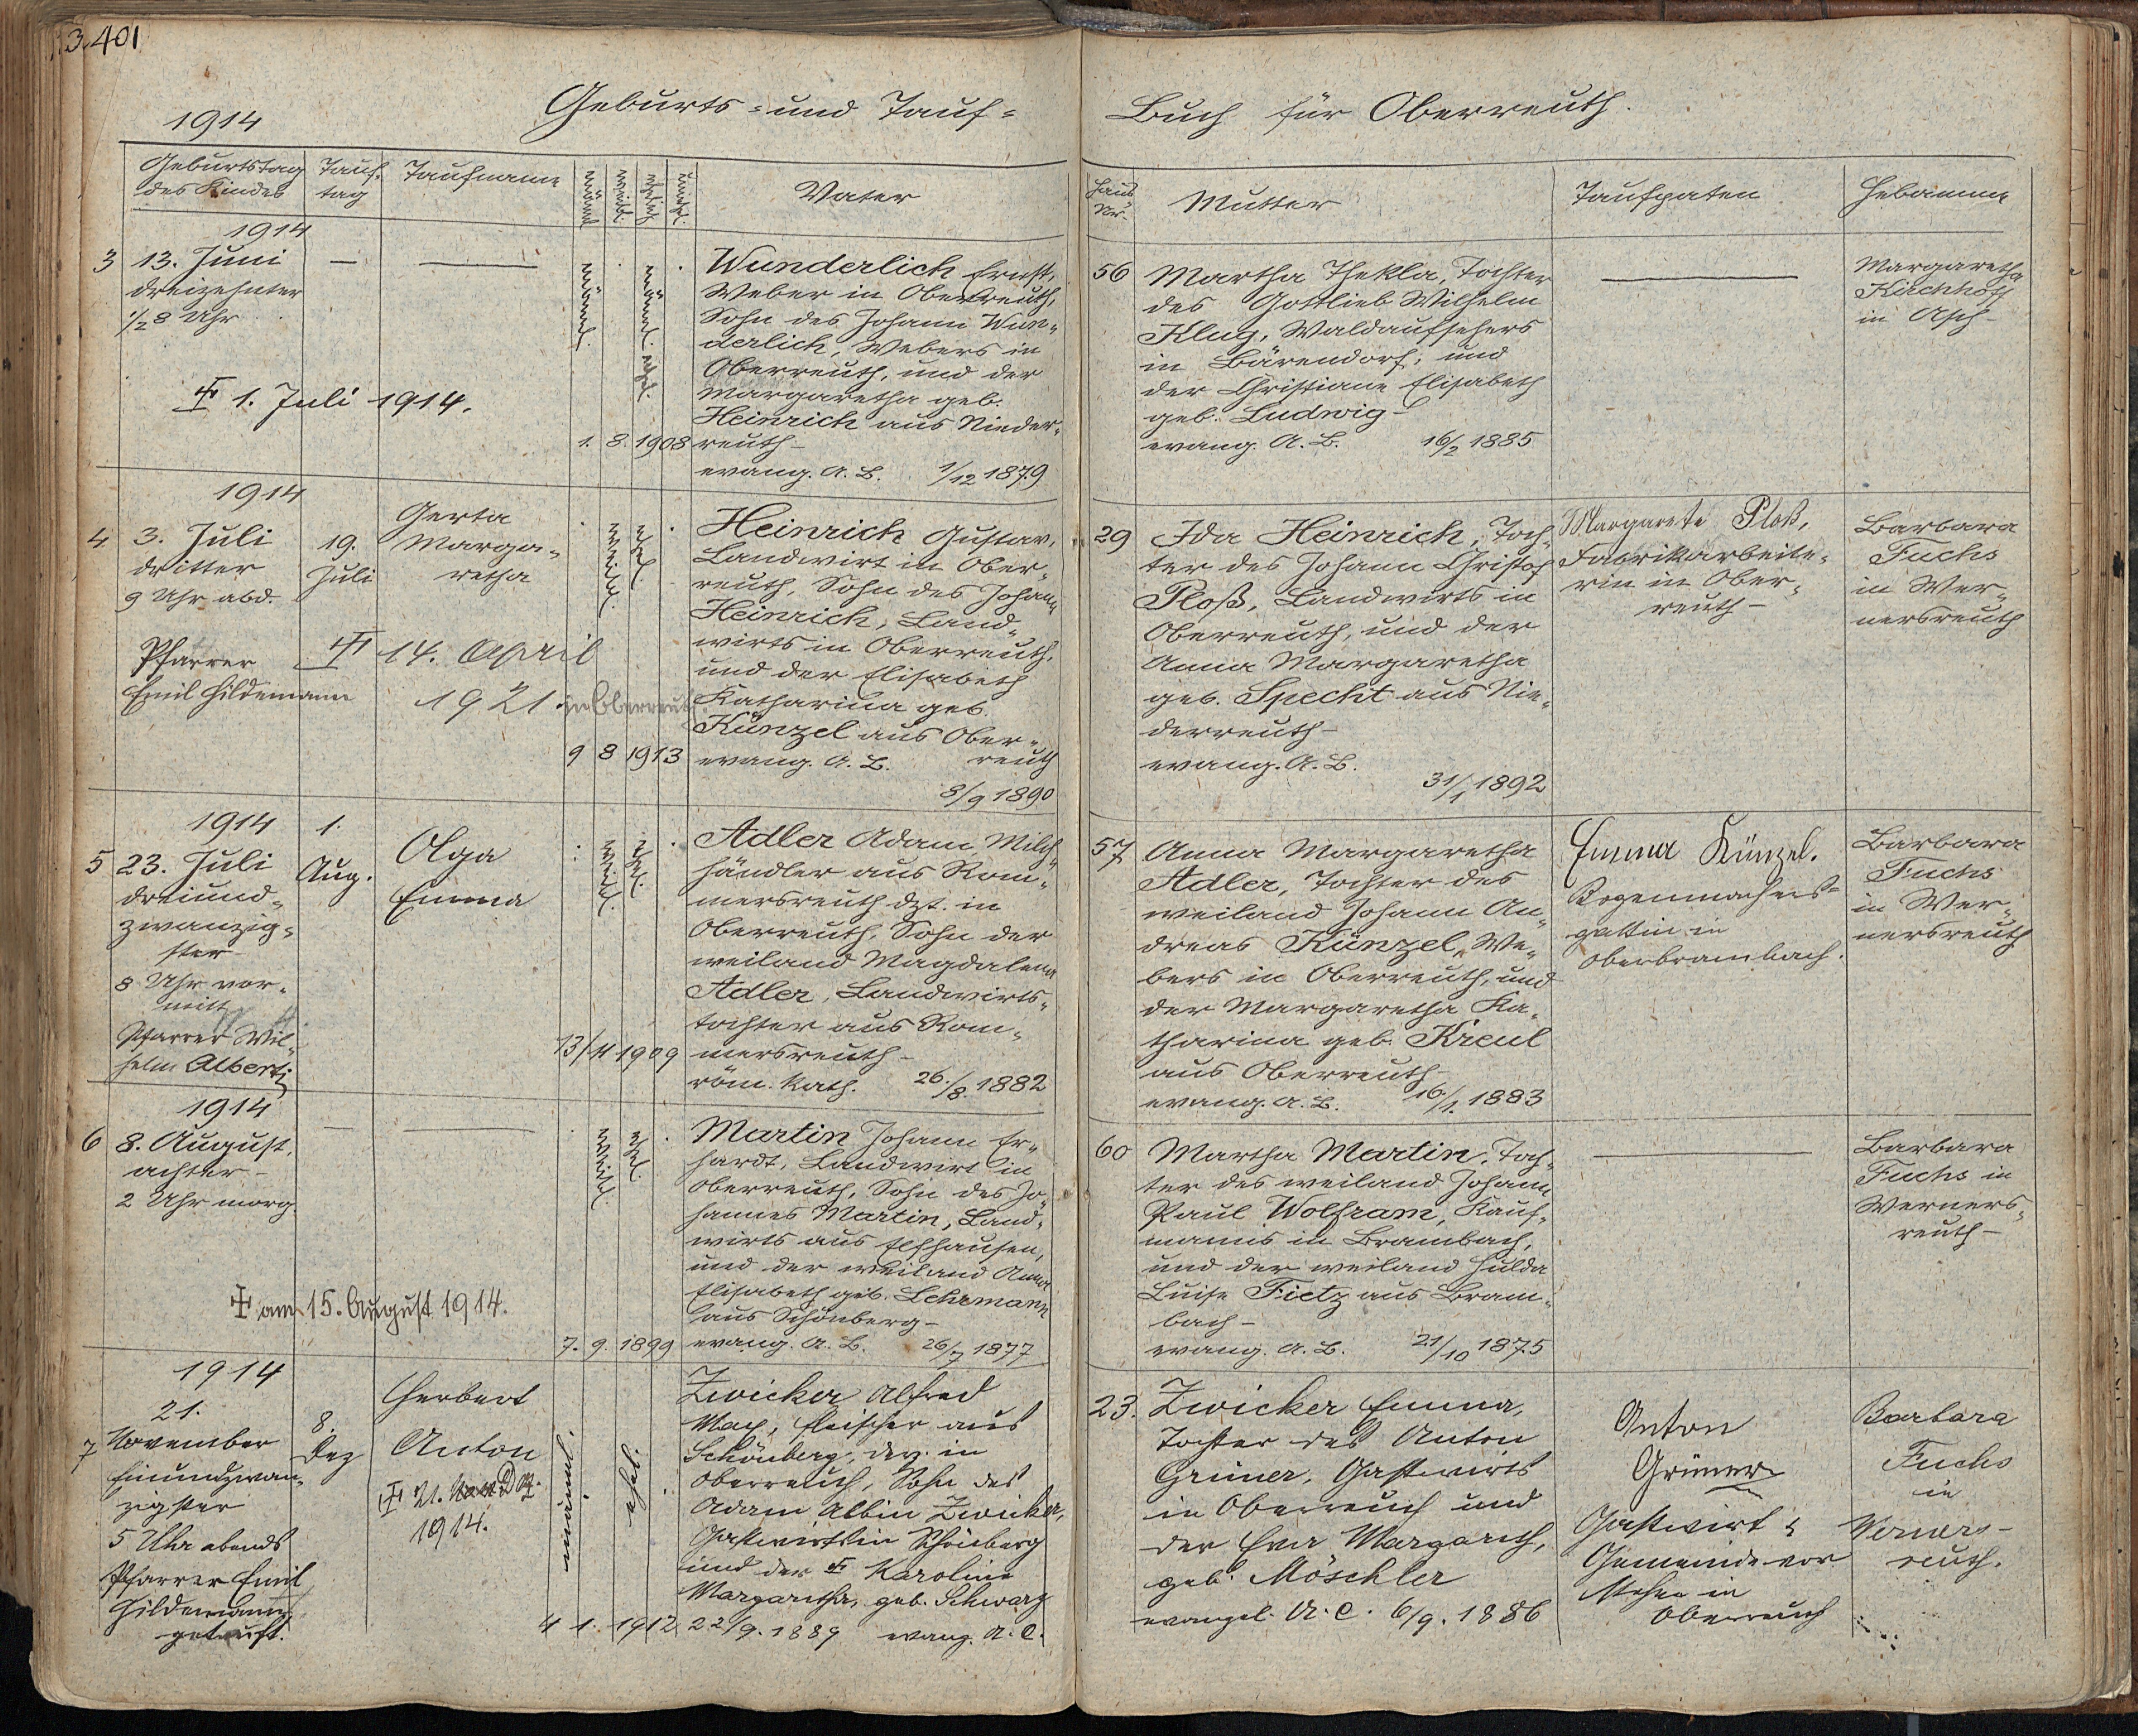 3.401
1914
Geburts- und Tauf-
Buch für Oberreuth.
Geburtstag
des Kindes
Tauf-
tag
Taufname
männl.
weibl.
ehelich
unehel.
Vater
Haus
Nr.
Mutter
Taufpaten
Hebamme
1914
3
13. Juni
dreizehnter
1/2 8 Uhr
—
—
männl.
ehel.
1. 8. 1908
Wunderlich Ernst,
Weber in Oberreuth,
Sohn des Johann Wun-
derlich, Webers in
Oberreuth, und der
Margaretha geb.
Heinrich aus Nieder-
reuth-
evang. A. B. 1/12 1879
☩ 1. Juli 1914.
56
Martha Thekla, Tochter
des Gottlieb Wilhelm
Klug, Waldaufsehers
in Bärendorf, und
der Christiane Elisabeth
geb. Ludwig-
evang. A. B. 16/2 1885
—
Margaretha
Kirchhoff
in Asch-
1914
4
3. Juli
dritter
9 Uhr abd.
Pfarrer
Emil Hildemann
19.
Juli
Gerta
Marga-
retha
☩ 14. April
1921 in Oberreuth
weibl.
ehel.
9 8 1913
Heinrich Gustav,
Landwirt in Ober-
reuth, Sohn des Johann
Heinrich, Land-
wirts in Oberreuth,
und der Elisabeth
Katharina geb.
Künzel aus Ober-
reuth
evang. A. B.
8/9 1890
29
Ida Heinrich, Toch-
ter des Johann Christof
Ploß, Landwirts in
Oberreuth, und der
Anna Margaretha
geb. Specht aus Nie-
derreuth-
evang. A. B.
31/1 1892
Margarete Ploß,
Fabrikarbeite-
rin in Ober-
reuth-
Barbara
Fuchs
in Wer-
nersreuth
1914
5
23. Juli
dreiund-
zwanzig-
ster-
8 Uhr vor-
mitt.
Pfarrer Wil-
helm Alberti
1.
Aug.
Olga
Emma
weibl.
ehel.
13/11 1909
Adler Adam, Milch-
händler aus Rom-
mersreuth dzt. in
Oberreuth, Sohn der
weiland Magdalena
Adler, Landwirts-
tochter aus Rom-
mersreuth-
röm. kath. 26./8. 1882
57
Anna Margaretha
Adler, Tochter des
weiland Johann An-
dreas Künzel, We-
bers in Oberreuth, und
der Margaretha Ka-
tharina geb. Kreul
aus Oberreuth-
evang. A. B. 16./1. 1883
Emma Künzel.
Bogenmachers-
gattin in
Oberbrambach.
Barbara
Fuchs
in Wer-
nersreuth
1914
6
8. August,
achter-
2 Uhr morg.
—
—
☩ am 15. August 1914.
weibl.
ehel.
7. 9. 1899
Martin Johann Er-
hardt, Landwirt in
Oberreuth, Sohn des Jo-
hannes Martin, Land-
wirts aus Elfhausen,
und der weiland Anna
Elisabeth geb. Lehrmann
aus Schönberg-
evang. A. B. 26/7 1877
60
Martha Martin, Toch-
ter des weiland Johann
Paul Wolfram, Kauf-
manns in Brambach,
und der weiland Hulda
Luise Fietz aus Bram-
bach-
evang. A. B. 21/10 1875
—
Barbara
Fuchs in
Werners-
reuth-
1914
7
21.
November
Einundzwan-
zigster
5 Uhr abends
Pfarrer Emil
Hildemann
getauft.
8.
Dez
Herbert
Anton
☩ 21. Dez.
1914.
männl.
ehel.
4 1. 1912
Zwicker Alfred
Max, Fleischer aus
Schönberg, dz. in
Oberreuth, Sohn des
Adam Albin Zwicker,
Gastwirts in Schönberg
und der ☩ Karoline
Margaretha, geb. Schwarz
22/9. 1889 evang. A. C.
23.
Zwicker Emma,
Tochter des Anton
Grüner, Gastwirts
in Oberreuth und
der Eva Margareth,
geb. Möschler
evangel. A. C. 6/9. 1886
Anton
Grüner
Gastwirt &
Gemeindevor
steher in
Oberreuth
Barbara
Fuchs
in
Werners-
reuth.